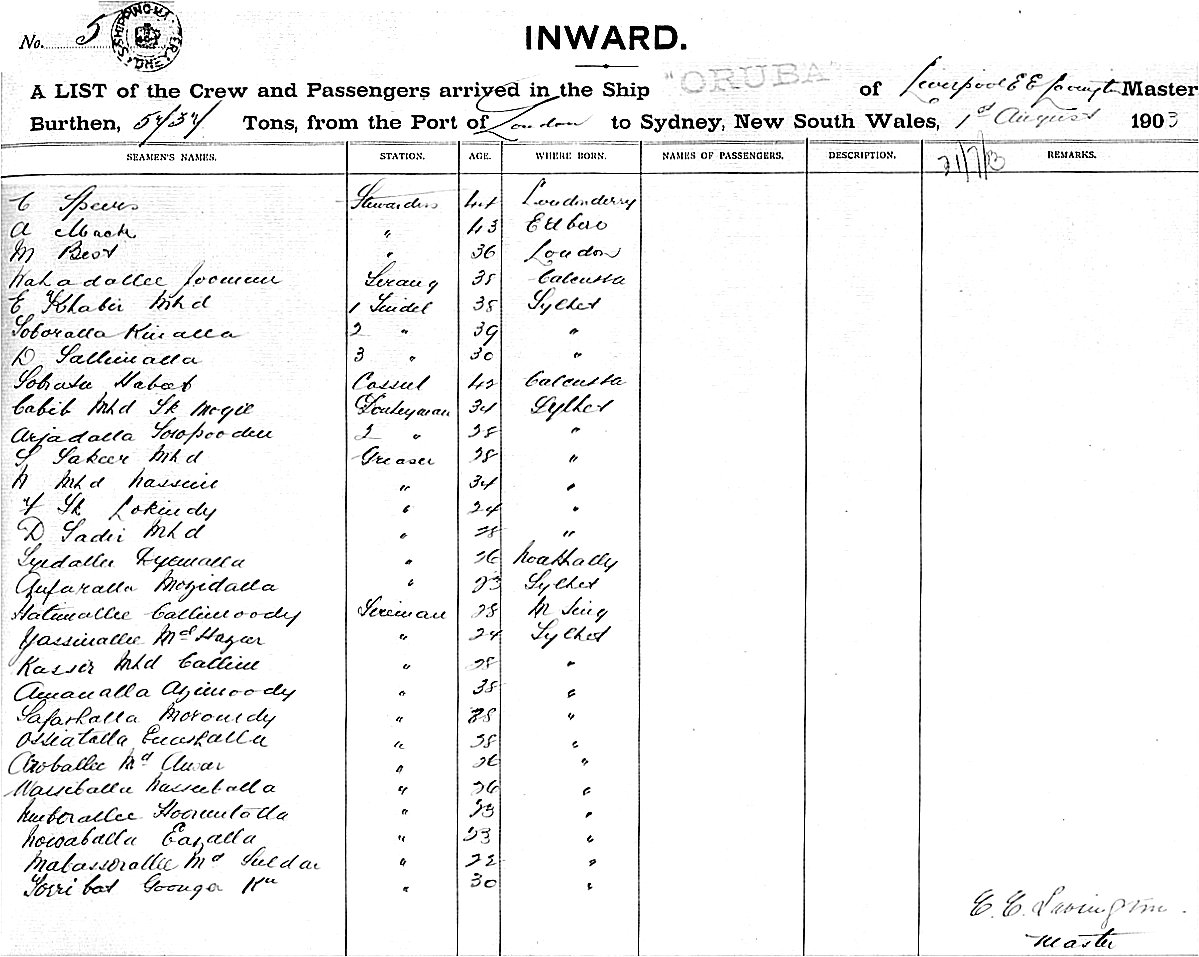 No. 5
SHIPPING MASTER'S
INWARD.
A LIST of the Crew and Passengers arrived in the Ship "ORUBA" of Liverpool E E Lavington Master
Burthen, 5737 Tons, from the Port of London to Sydney, New South Wales, 1st August 1903
SEAMEN'S NAMES. STATION. AGE. WHERE BORN. NAMES OF PASSENGERS. DESCRIPTION. REMARKS.
21/7/3
C Speers Stewardess 44 Londonderry
A Mack " 43 Edboro
M Best " 36 London
Wahadallee Jooman Serang 35 Calcutta
E Khabir Mhd 1 Tindel 38 Sylhet
Soboralla Kinalla 2 " 39 "
D Sallimalla 3 " 30 "
Habot Cassub 42 Calcutta
Cabib Mhd Sk Mogil Donkeyman 34 Sylhet
Arjadalla 2 " 28 "
S Sakeer Mhd Greaser 28 "
N Mhd Nassim " 34 "
Y Sk Lokindy " 24 "
D Sadir Mhd " 28 "
Syedallee " 26 Noakhally
Mozidalla " 23 Sylhet
Hatimallee Callimoody Fireman 28 M Sing
Yassinallee Md Hazir " 24 Sylhet
Kassir Mhd Callim " 28 "
Amanalla Azimoody " 38 "
Safarhalla Moromdy " 28 "
Ossiatalla " 28 "
Aroballee Md Anwar " 26 "
Wasseballa Nasseeballa " 26 "
" 23 "
Nowaballa Eazalla " 23 "
Md " 22 "
Goonga " 30 "
E. E. Lavington
Master